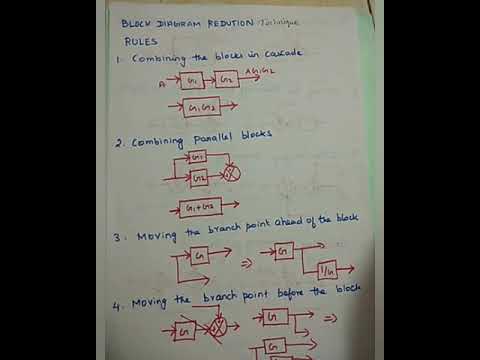 BLOCK DIAGRAM REDUTION Technique
RULES
1. Combining the blocks in cascade
A G1 G2 AG1G2
G1G2
2. Combining Parallel blocks
G1
G2
G1+G2
3. Moving the branch point ahead of the block
G ⇒ G
1/G
4. Moving the branch point before the block
G G ⇒
G